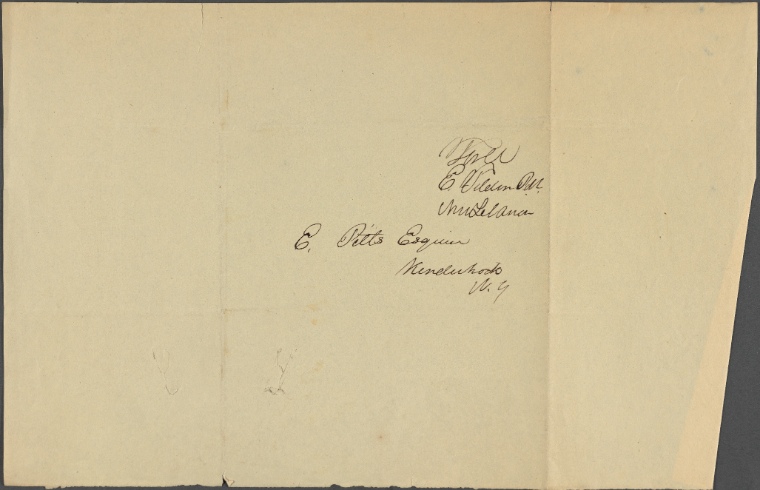 Free
E. Tilden P.M.
New Lebanon
E. Pitts Esquire
Kinderhook
N. Y